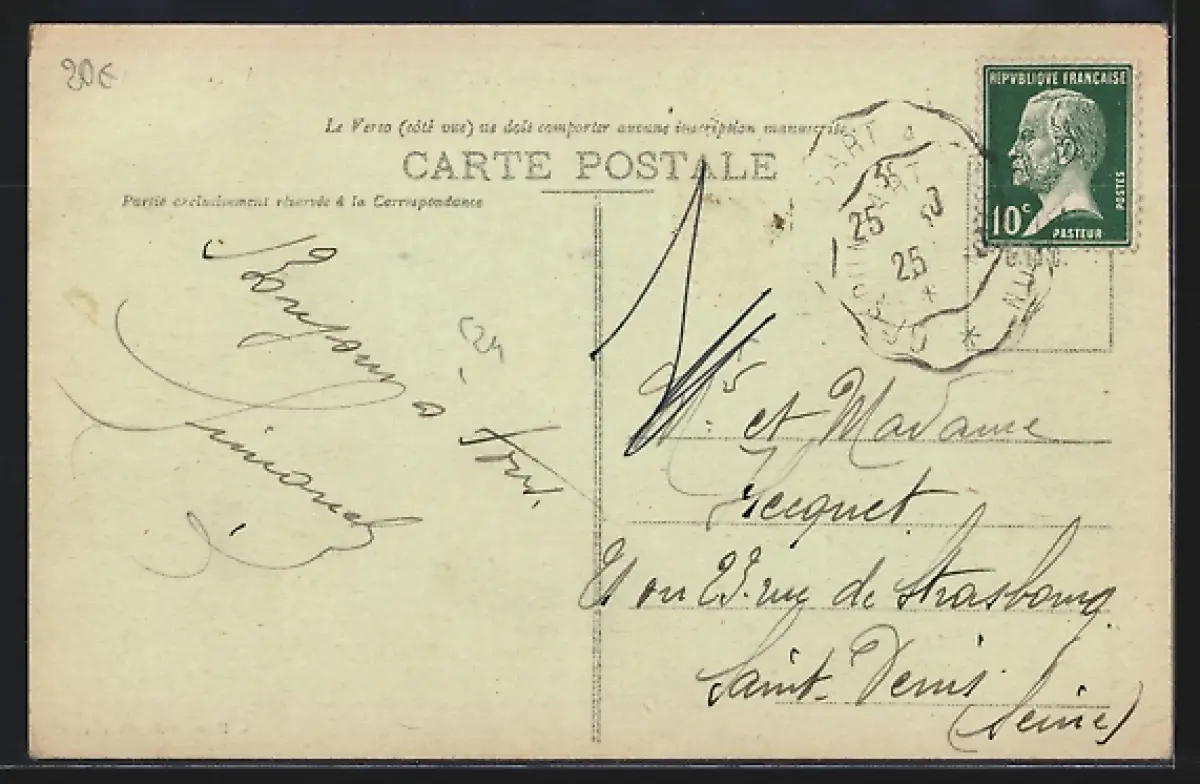 20€
Le Verso (côté vue) ne doit comporter aucune inscription manuscrite
CARTE POSTALE
Partie exclusivement réservée à la Correspondance
REPVBLIQUE FRANÇAISE
10c
PASTEUR
POSTES
25
25
Bonjour a tous.
Simone
M.rs et Madame
21 ou 23. rue de Strasbourg
Saint-Denis
(Seine)